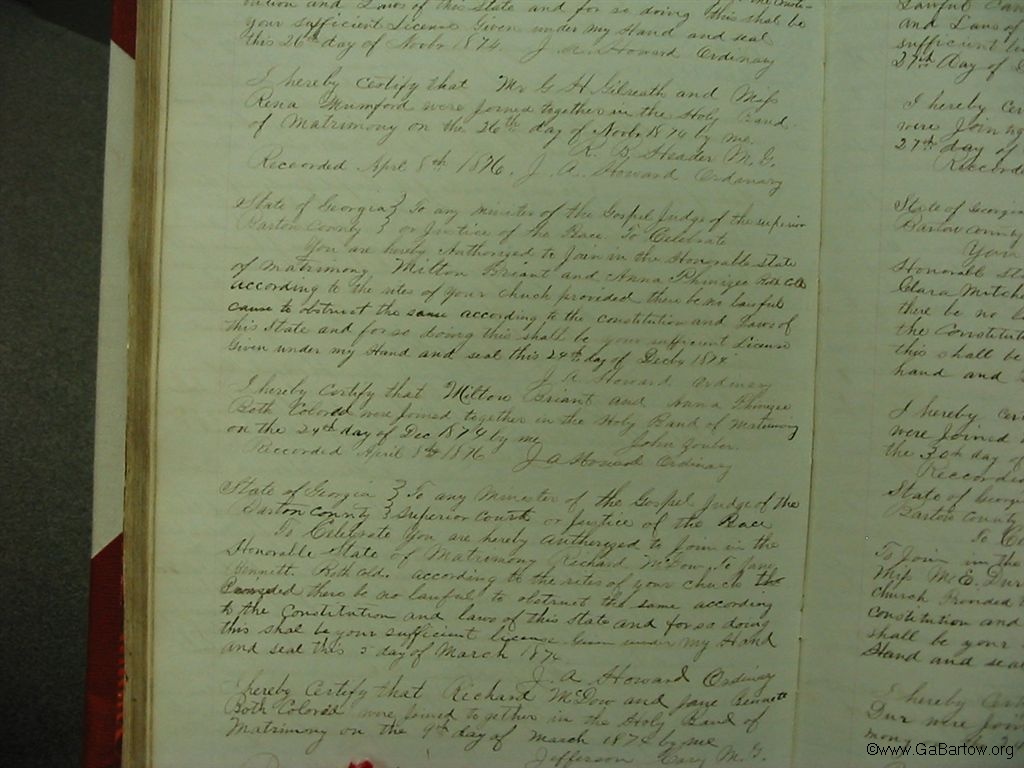 tution and Laws of this State and for so doing this shal be
your sufficient License Given under my Hand and seal
this 26th day of Novbr 1874. J. A. Howard Ordinary
I hereby Certify that Mr G H Gilreath and Miss
Rena Mumford were Joined together in the Holy Band
of Matrimony on the 26th day of Novbr 1874 by me.
R. B. Headen M. G.
Reccorded Aprl 8th 1876. J. A. Howard Ordinary
State of Georgia } To any Minister of the Gospel Judge of the superior
Barton County } or Justice of the Peace. To Celebrate
You are hereby Authorized to Join in the Honorable state
of Matrimony Milton Briant and Anna Phinizee Both Cold
according to the rites of your chuch provided there be no lawful
cause to obstruct the same according to the constitution and Laws of
this State and for so doing this shall be your sufficient License
Given under my Hand and seal this 24th day of Decbr 1874
J. A. Howard Ordinary
I hereby Certify that Milton Briant and Anna Phinizee
Both Colored were Joined together in the Holy Band of Matrimony
on the 24th day of Dec 1874 by me John
Reccorded April 8th 1876 J A Howard Ordinary
State of Georgia } To any Minister of the Gospel Judge of the
Barton County } Superior Court or Justice of the Peace
To Celebrate You are hereby Authorized to Join in the
Honorable State of Matrimony Richard McDow To Jane
Bennett. Both Cold. according to the rites of your chuch
Provided there be no lawful to obstruct the same according
to the Constitution and laws of this State and for so doing
this shal be your sufficient license Given under my Hand
and seal this 5 day of March 187
J. A Howard Ordinary
I hereby Certify that Richard McDow and Jane Bennett
Both Colored were Joined together in the Holy Band of
Matrimony on the 9th day of March 1874 by me
Jefferson Cary M. G.
and Laws of
sufficient
27th Day of
I hereby Cer
were Join
27th day of
Reccorde
State of Georgia
Bartow County
You
Honorable St
Clara Mitche
there be no l
the Constitut
this shall be
hand and
I hereby Cer
were Joined
the 30th day of
Reccorde
State of Georgi
Barton County
To Ce
To Join in the
Miss M. E. Dur
church Provided
Constitution and
shall be your
Hand and seal
I hereby Certi
Dur were Join
mony
©www.GaBartow.org